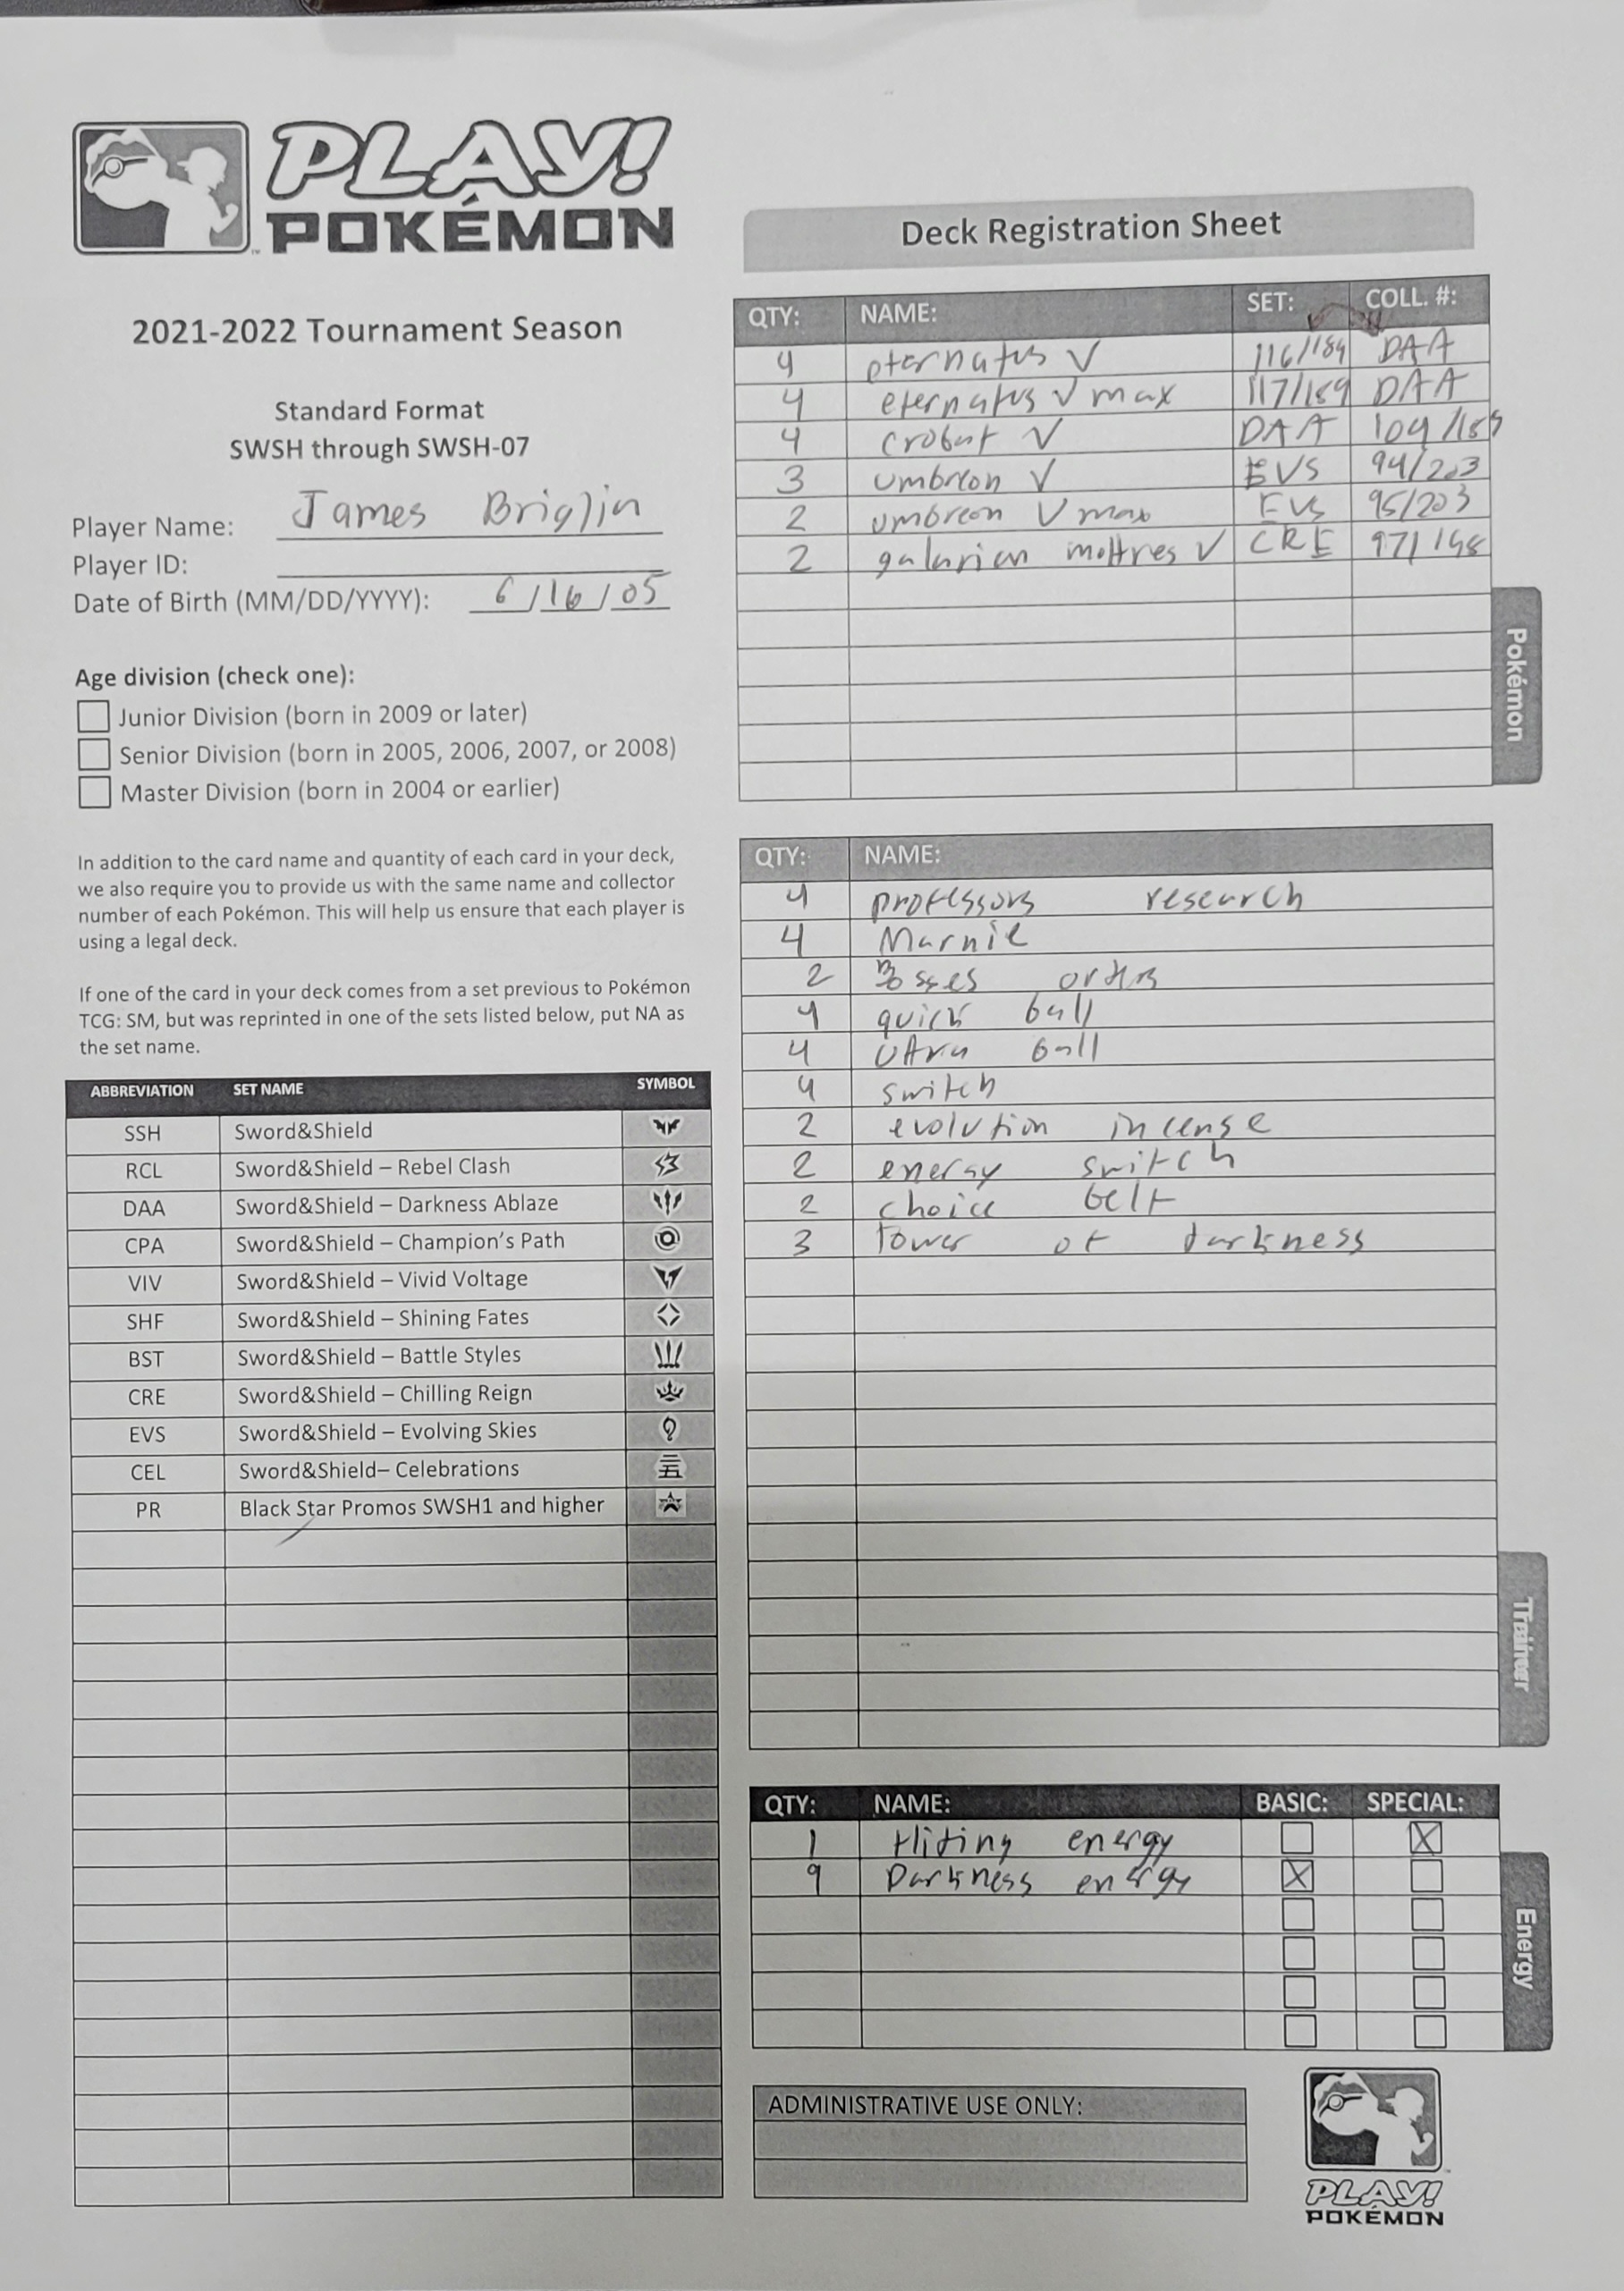 PLAY!
POKÉMON
2021-2022 Tournament Season
Standard Format
SWSH through SWSH-07
Player Name: James Briglin
Player ID:
Date of Birth (MM/DD/YYYY): 6/16/05
Age division (check one):
Junior Division (born in 2009 or later)
Senior Division (born in 2005, 2006, 2007, or 2008)
Master Division (born in 2004 or earlier)
In addition to the card name and quantity of each card in your deck,
we also require you to provide us with the same name and collector
number of each Pokémon. This will help us ensure that each player is
using a legal deck.
If one of the card in your deck comes from a set previous to Pokémon
TCG: SM, but was reprinted in one of the sets listed below, put NA as
the set name.
ABBREVIATION SET NAME SYMBOL
SSH Sword&Shield
RCL Sword&Shield – Rebel Clash
DAA Sword&Shield – Darkness Ablaze
CPA Sword&Shield – Champion's Path
VIV Sword&Shield – Vivid Voltage
SHF Sword&Shield – Shining Fates
BST Sword&Shield – Battle Styles
CRE Sword&Shield – Chilling Reign
EVS Sword&Shield – Evolving Skies
CEL Sword&Shield– Celebrations
PR Black Star Promos SWSH1 and higher
Deck Registration Sheet
QTY: NAME: SET: COLL. #:
4 eternatus V 116/189 DAA
4 eternatus V max 117/189 DAA
4 crobat V DAA 104/189
3 umbreon V EVS 94/203
2 umbreon V max EVS 95/203
2 galarian moltres V CRE 97/198
Pokémon
QTY: NAME:
4 professors research
4 Marnie
2 Bosses orders
4 quick ball
4 Ultra ball
4 switch
2 evolution incense
2 energy switch
2 choice belt
3 Tower of darkness
Trainer
QTY: NAME: BASIC: SPECIAL:
1 Hiding energy X
9 Darkness energy X
Energy
ADMINISTRATIVE USE ONLY:
PLAY!
POKÉMON